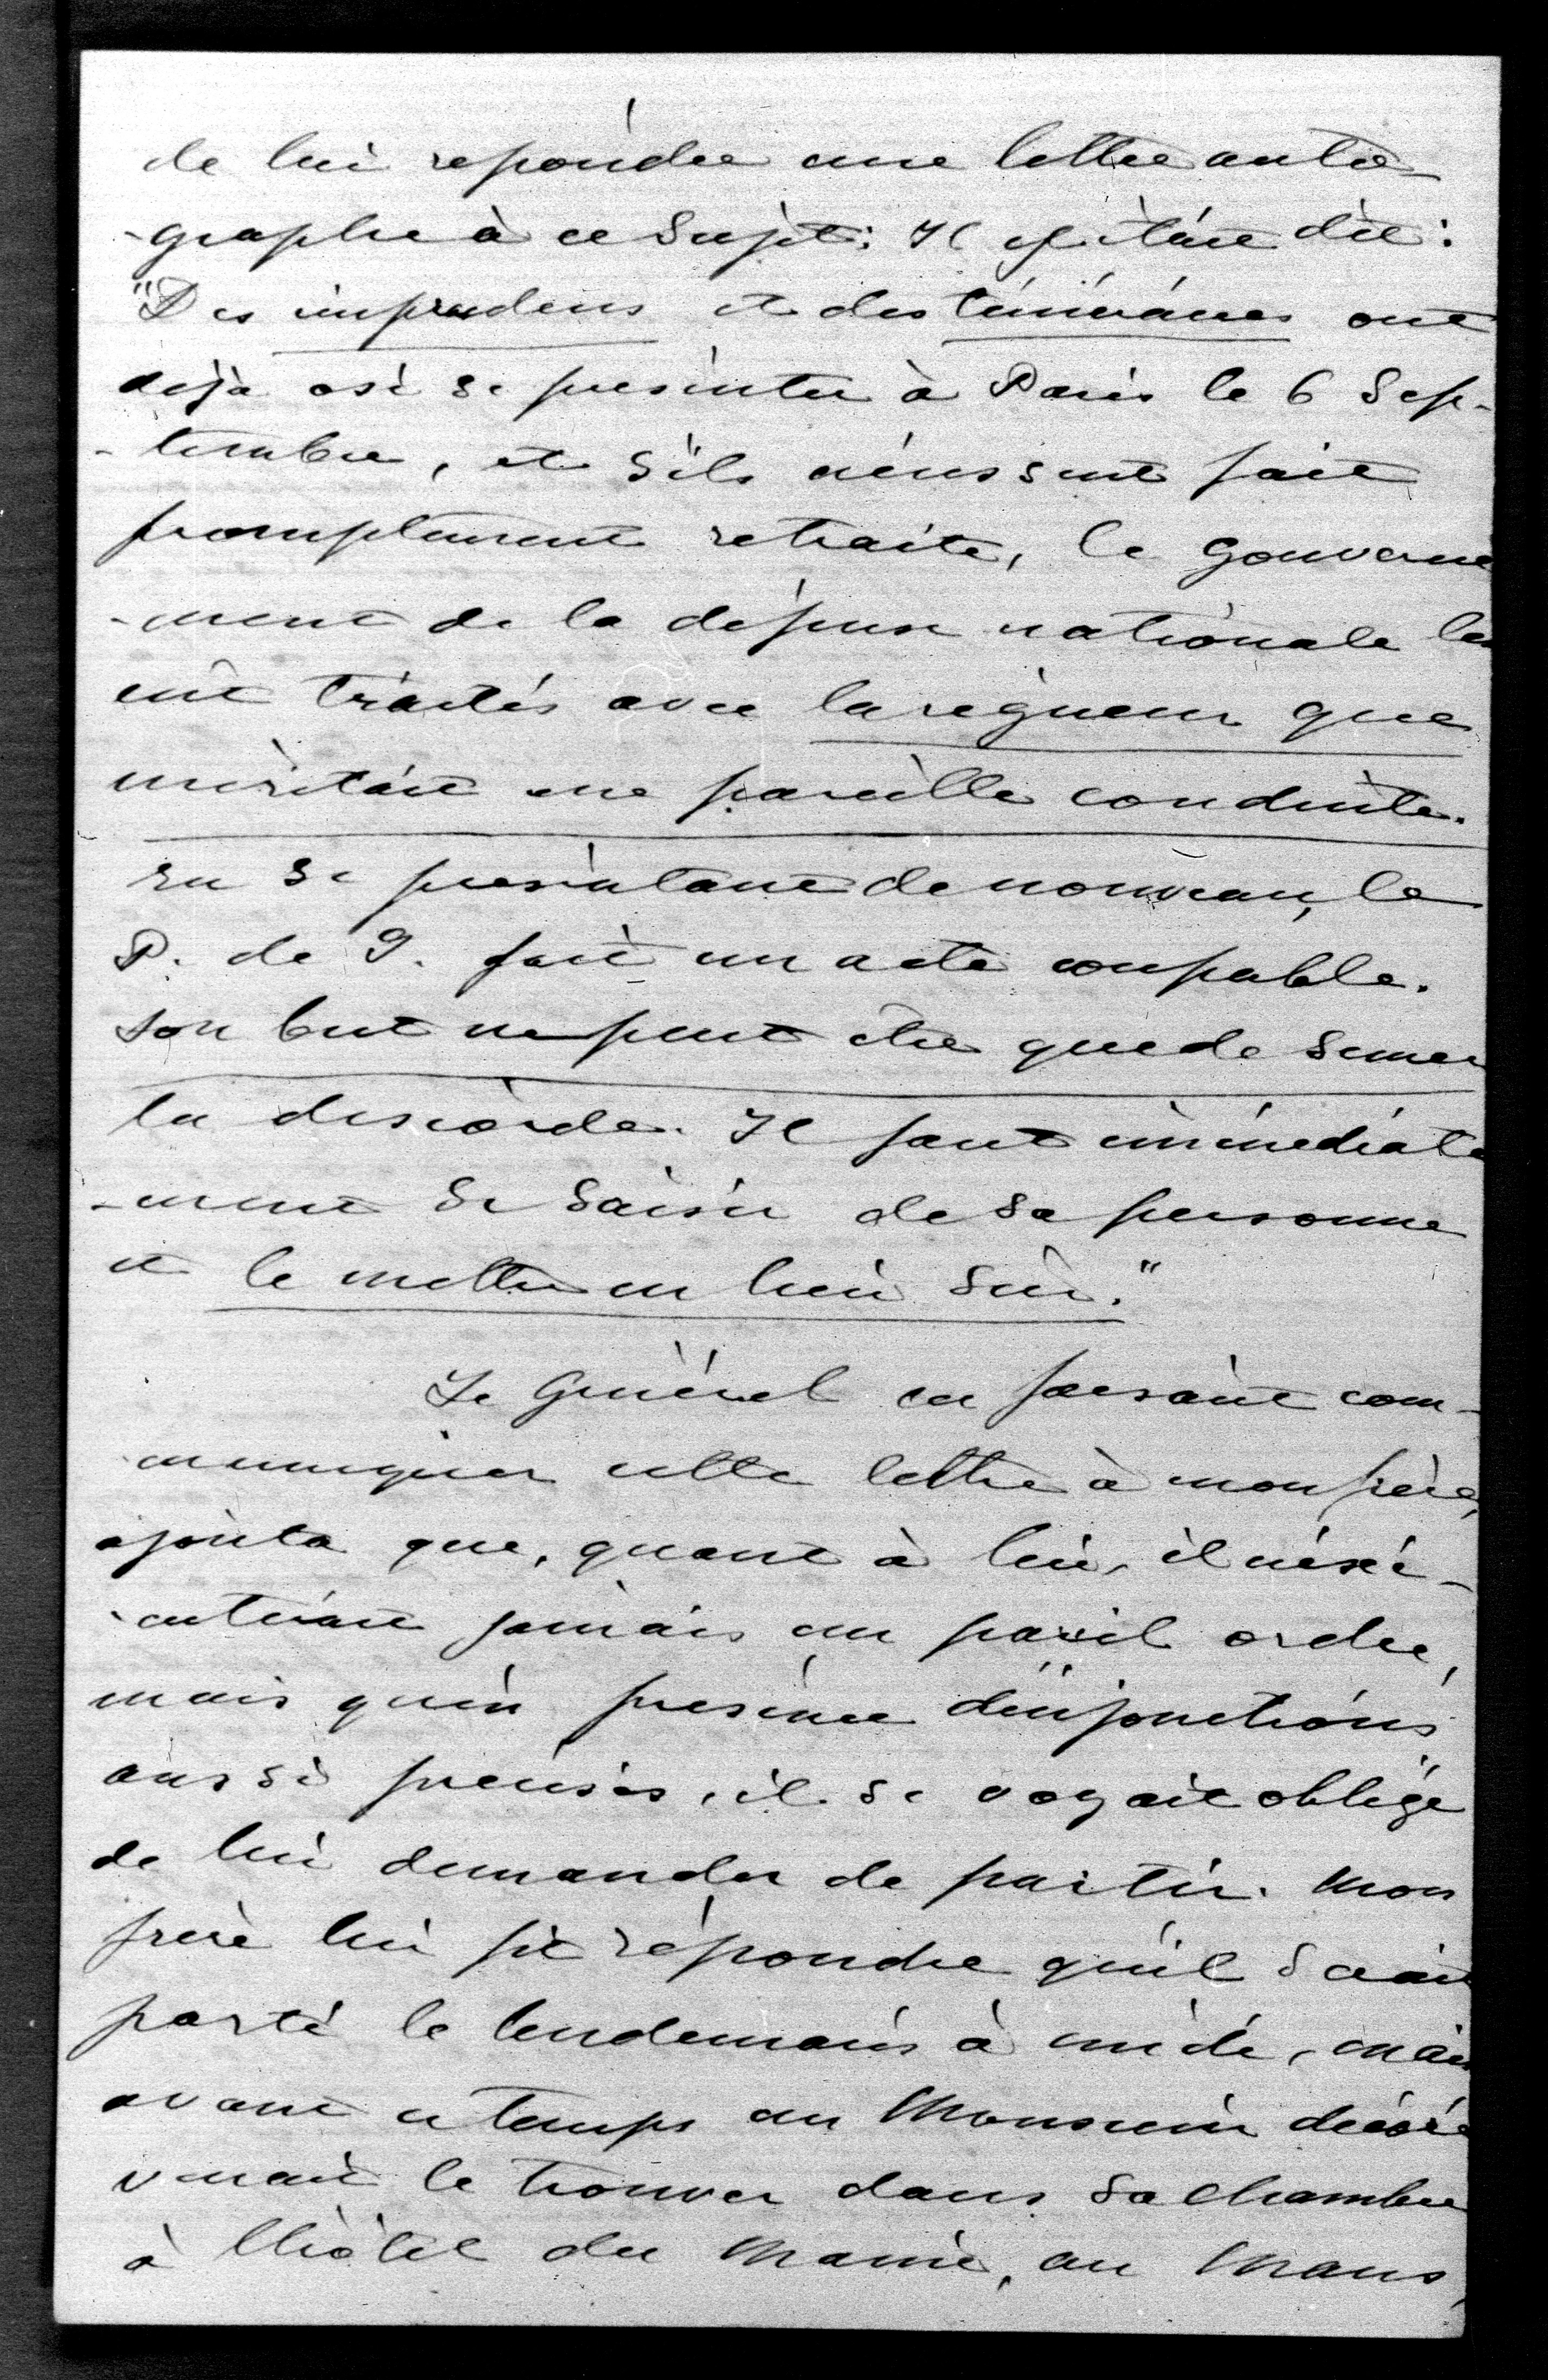 de lui répondre une lettre auto-
-graphe à ce sujet: Il y était dit:
"Des imprudens et des téméraires ont
déjà osé se présenter à Paris le 6 Sep-
-tembre, et s'ils n'eussent fait
promptement retraite, le Gouverne
-ment de la défense nationale les
eût traités avec la rigueur que
méritait une pareille conduite.
En se présentant de nouveau, le
P. de J. fait un acte coupable.
Son but ne peut être que de semer
la discorde. Il faut immédiate
-ment se saisir de sa personne
et le mettre en lieu sûr."
Le Général en faisant com-
-muniquer cette lettre à mon frère,
ajouta que, quant à lui, il n'exé-
-cuterait jamais un pareil ordre,
mais qu'en présence d'injonctions
aussi précises, il se voyait obligé
de lui demander de partir. Mon
frère lui fit répondre qu'il serait
parti le lendemain à midi, mais
avant ce temps un Monsieur décoré
venait le trouver dans sa chambre
à l'hôtel du Maine, au Mans,